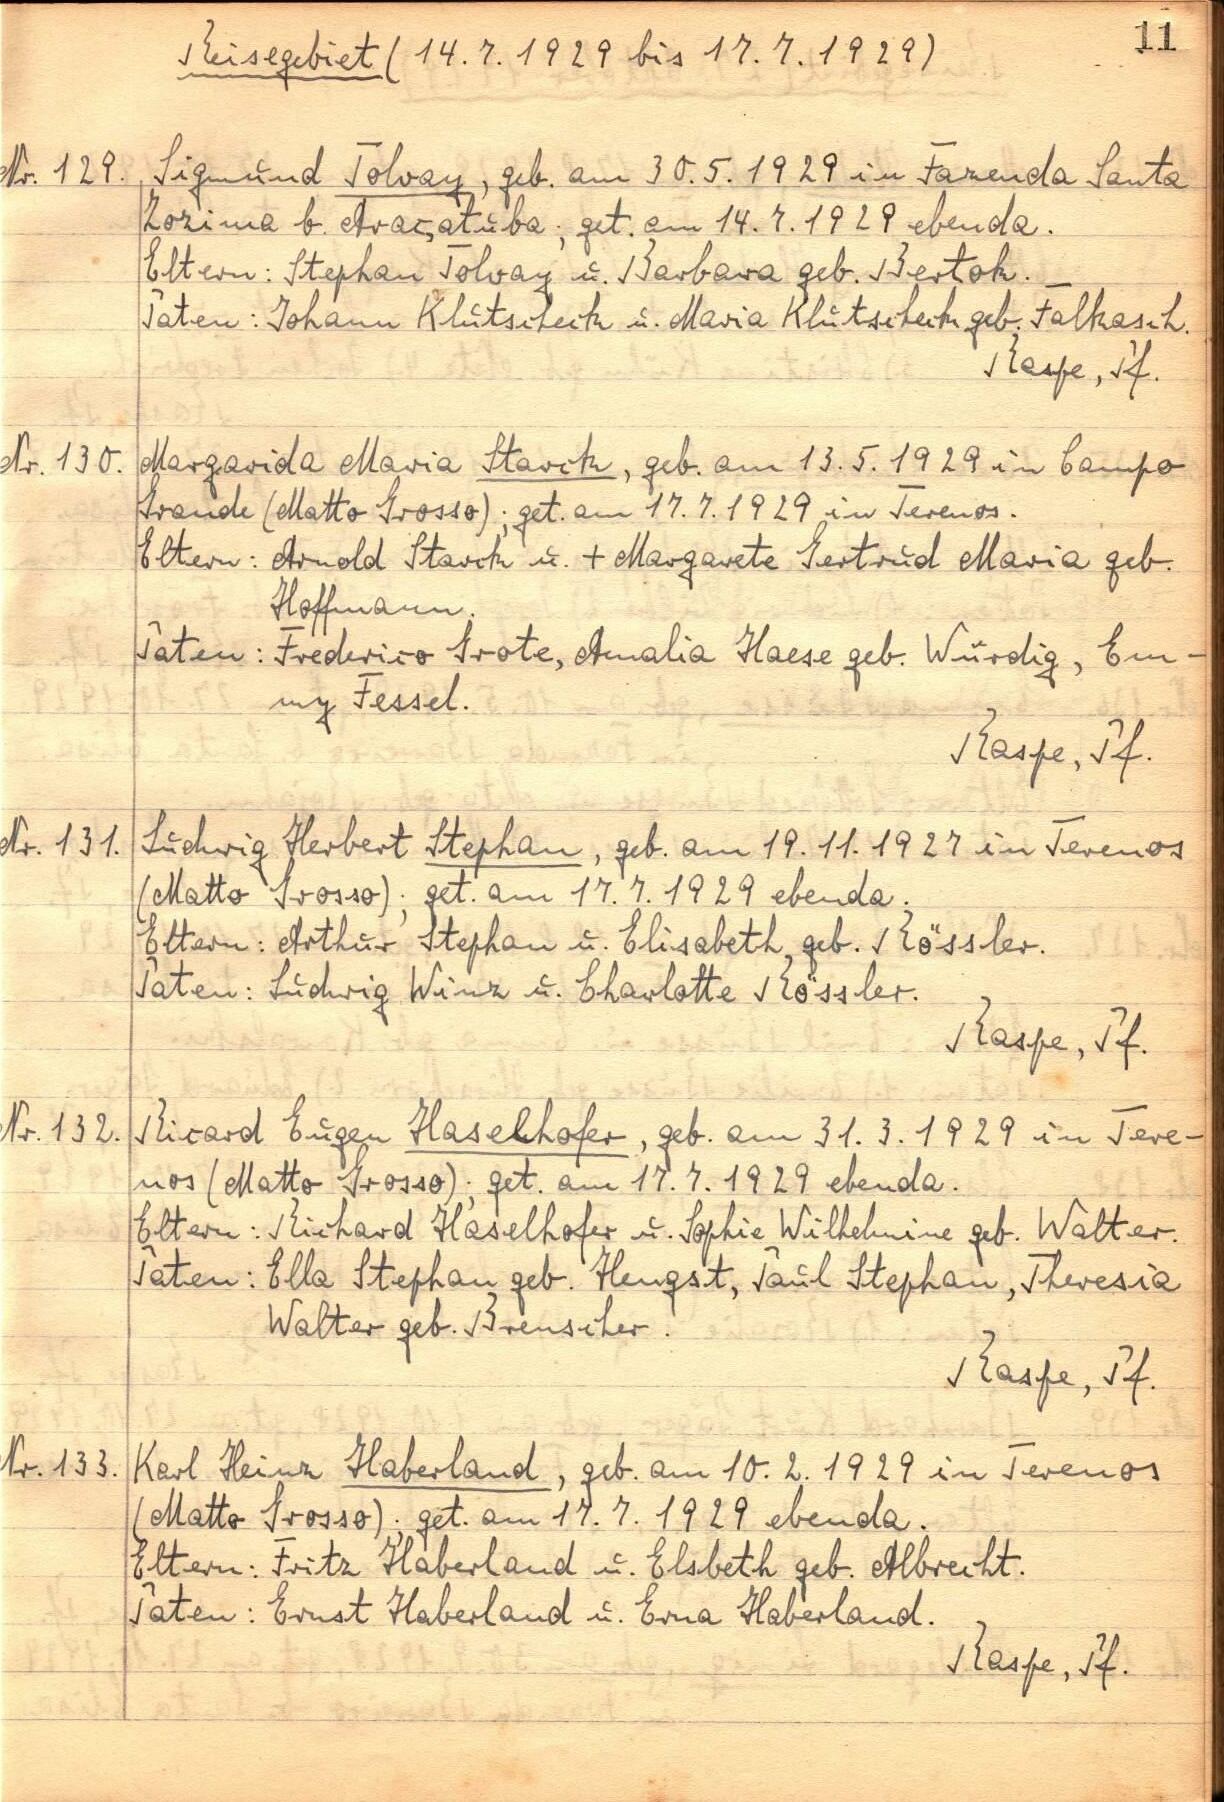 11
Reisegebiet (14.7.1929 bis 17.7.1929)
Nr. 129. Sigmund Tolvay, geb. am 30.5.1929 in Fazenda Santa
Zozima b. Araçatuba; get. am 14.7.1929 ebenda.
Eltern: Stephan Tolvay u. Barbara geb. Bertok.
Paten: Johann Klutscheck u. Maria Klutscheck geb. Falkasch.
Raspe, Pf.
Nr. 130. Margarida Maria Starck, geb. am 13.5.1929 in Campo
Grande (Matto Grosso); get. am 17.7.1929 in Terenos.
Eltern: Arnold Starck u. + Margarete Gertrud Maria geb.
Hoffmann.
Paten: Frederico Grote, Amalia Haese geb. Würdig, Em-
my Fessel.
Raspe, Pf.
Nr. 131. Ludwig Herbert Stephan, geb. am 19.11.1927 in Terenos
(Matto Grosso); get. am 17.7.1929 ebenda.
Eltern: Arthur Stephan u. Elisabeth, geb. Rössler.
Paten: Ludwig Winz u. Charlotte Rössler.
Raspe, Pf.
Nr. 132. Ricard Eugen Haselhofer, geb. am 31.3.1929 in Tere-
nos (Matto Grosso); get. am 17.7.1929 ebenda.
Eltern: Richard Haselhofer u. Sophie Wilhelmine geb. Walter.
Paten: Ella Stephan geb. Hengst, Paul Stephan, Theresia
Walter geb. Brenscher.
Raspe, Pf.
Nr. 133. Karl Heinz Haberland, geb. am 10.2.1929 in Terenos
(Matto Grosso); get. am 17.7.1929 ebenda.
Eltern: Fritz Haberland u. Elsbeth geb. Albrecht.
Paten: Ernst Haberland u. Erna Haberland.
Raspe, Pf.